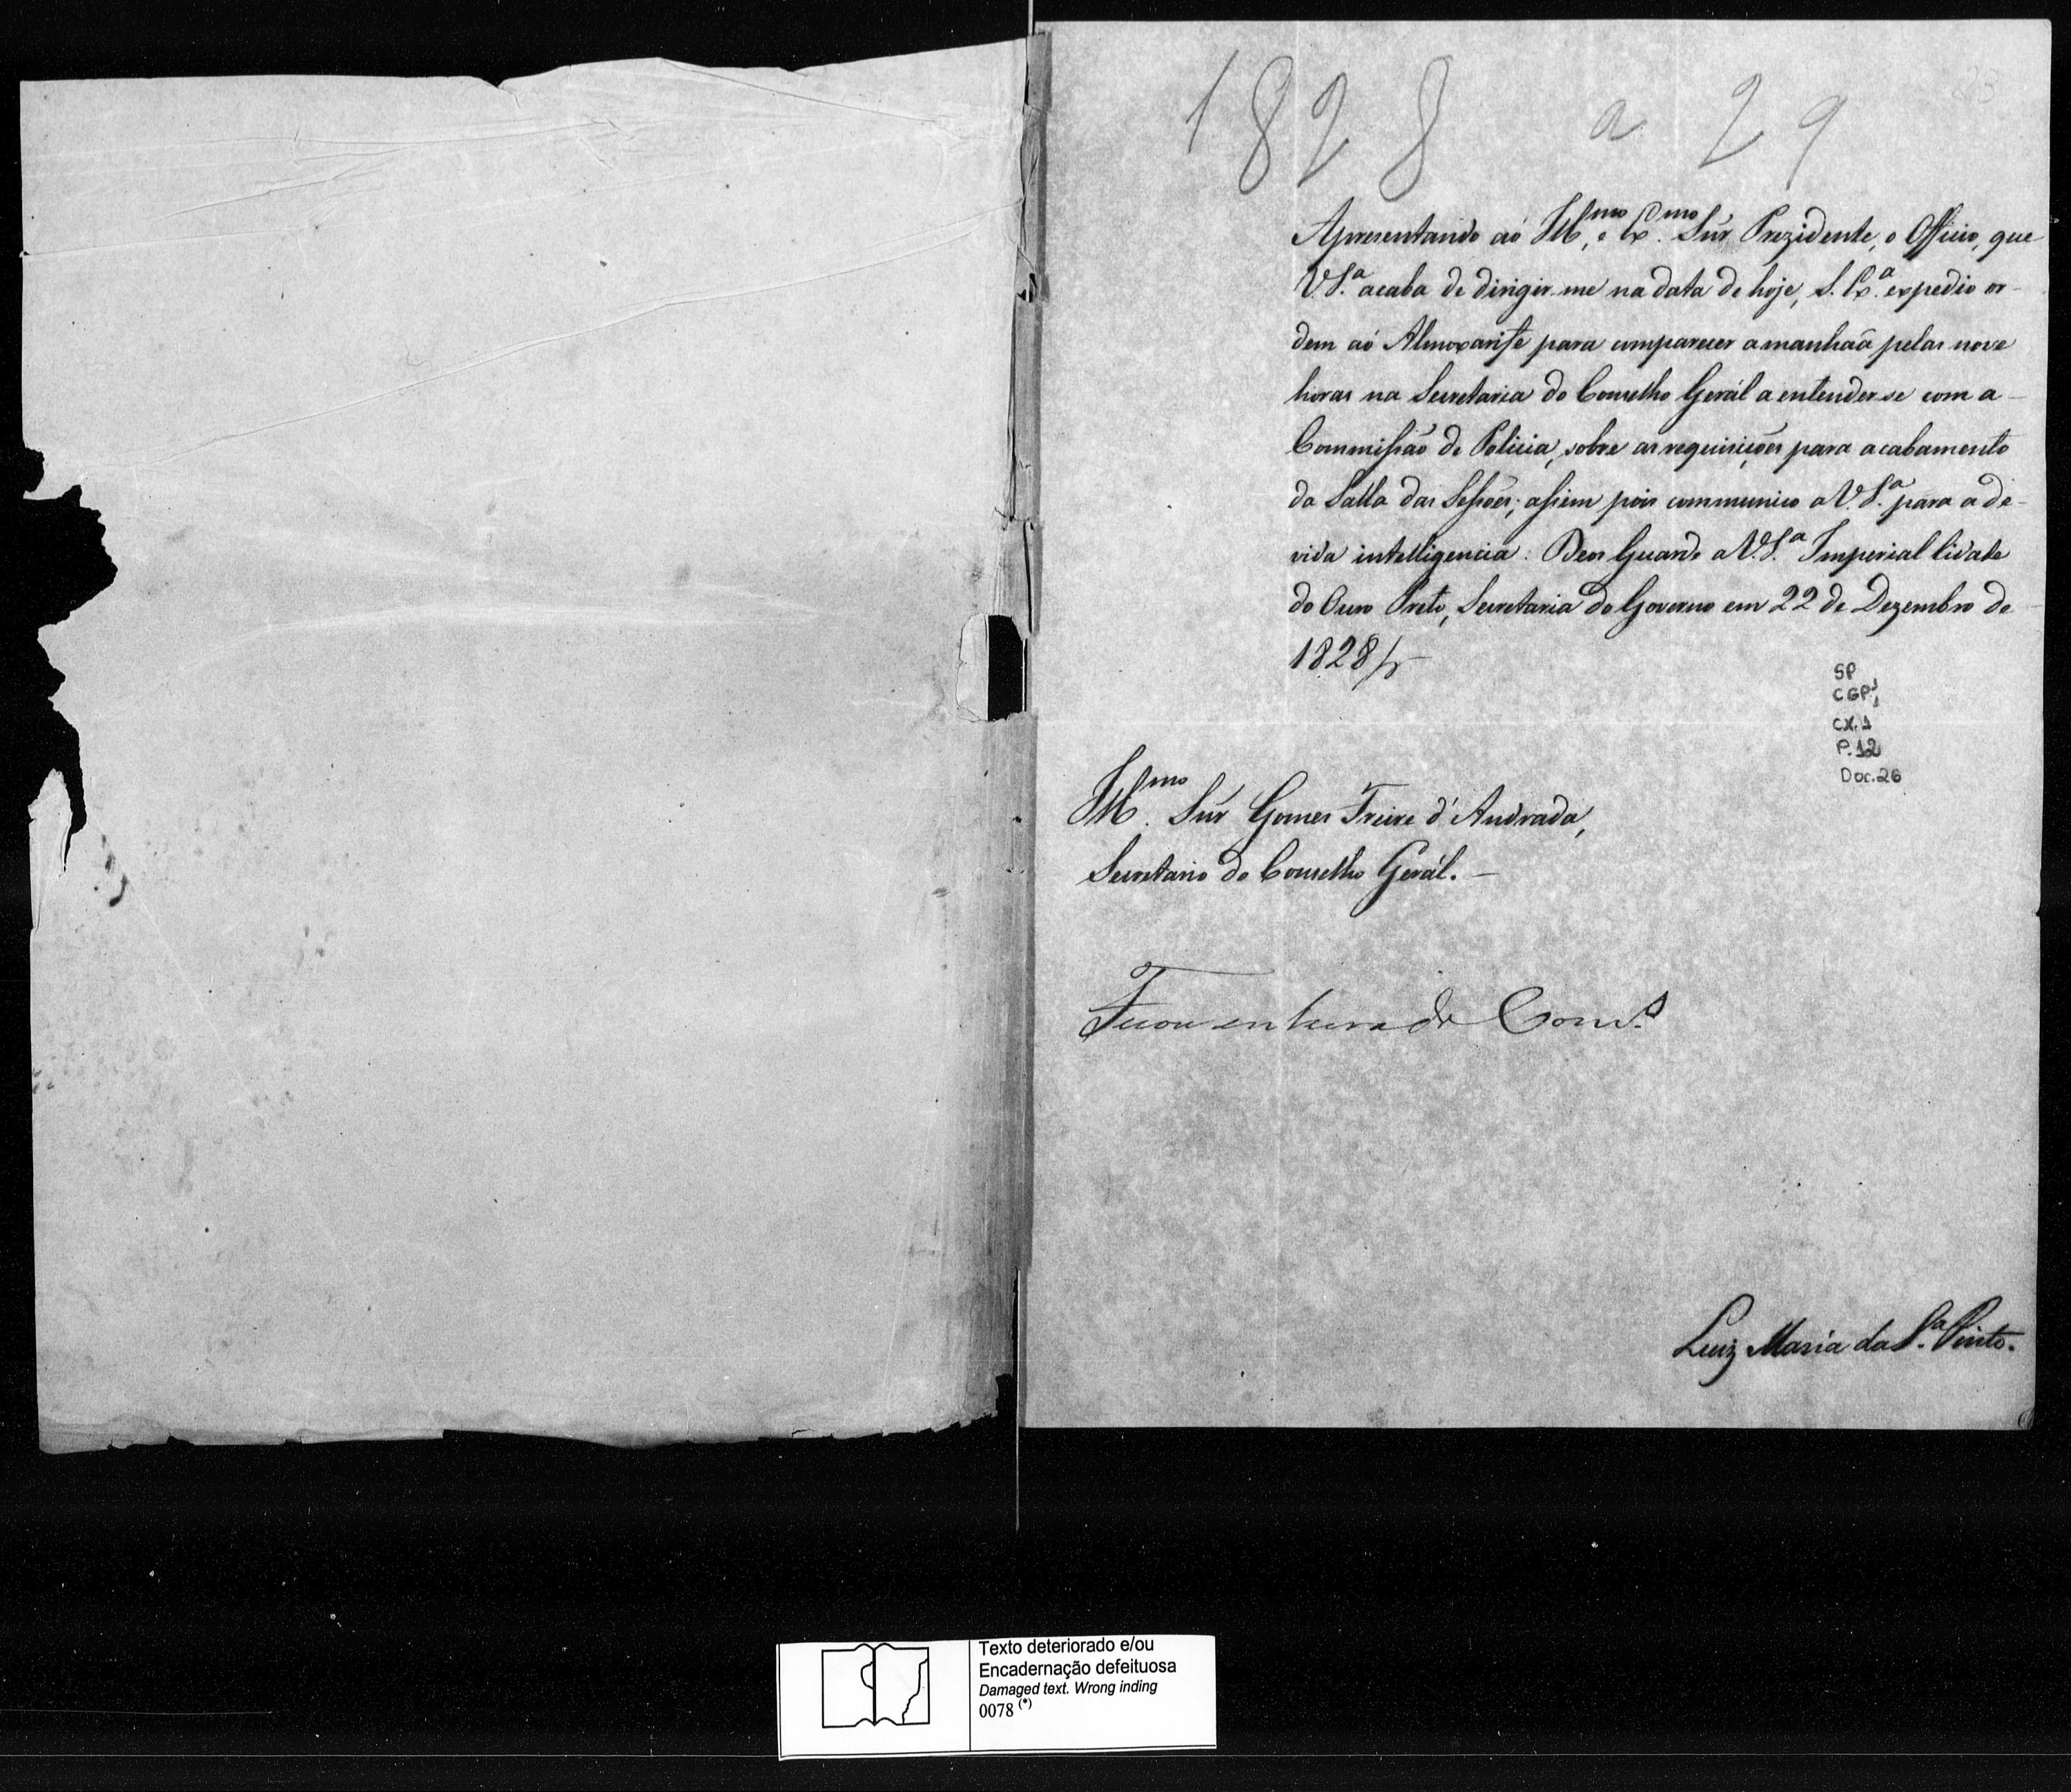 1828 a 29
23
Apresentando aó Ill.mo, e Ex.mo Snr̃ Prezidente, o Officio, que
V.S.ª acaba de dirigir-me na data de hoje, S. Ex.ª expedio or-
dem aó Almoxarife para comparecer amanhaã pelas nove
horas na Secretaria do Conselho Gerál a entender-se com a
Commissão de Policia, sobre as requisições para acabamento
da Salla das Sessões; assim pois communico a V.S.ª para a de-
vida intelligencia. Deos Guarde a V.S.ª Imperial Cidade
do Ouro Preto, Secretaria do Governo em 22 de Dezembro de
1828
SP
CGP1
CX.1
P.12
Doc.26
Ill.mo Snr̃ Gomes Freire d'Andrada,
Secretario do Conselho Gerál.
Ficou inteirado Cons.º
Luiz Maria da S.ª Pinto.
Texto deteriorado e/ou
Encadernação defeituosa
Damaged text. Wrong inding
0078 (*)